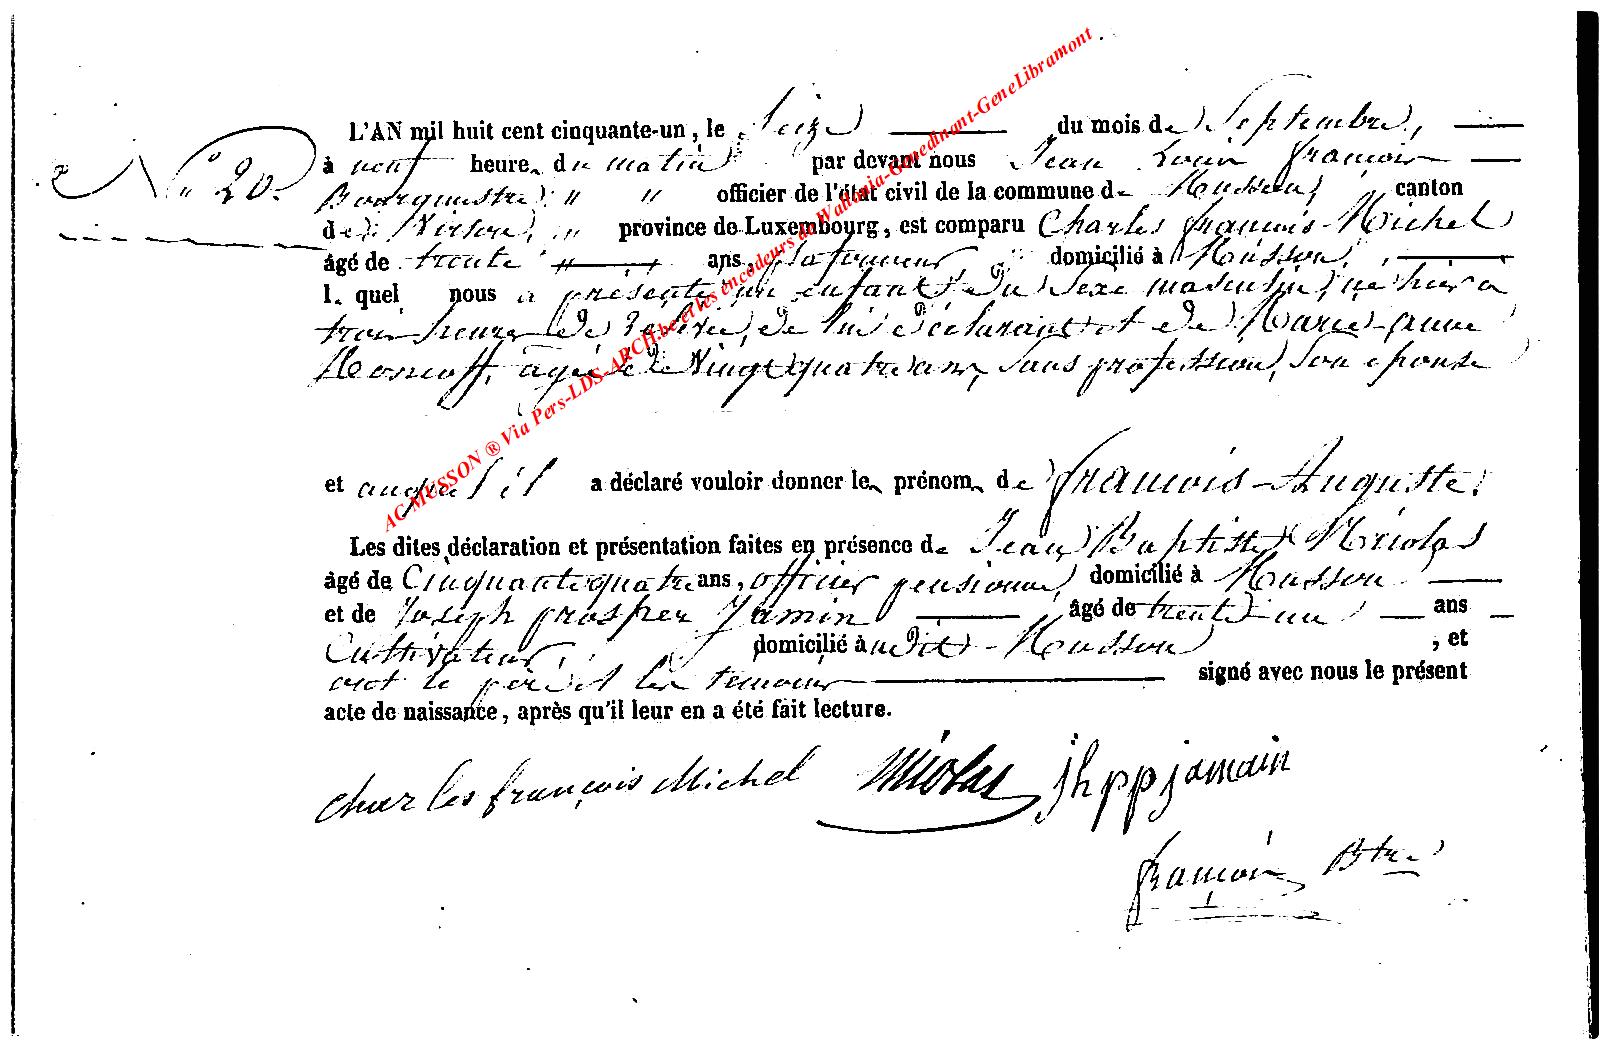 N° 20.
L'AN mil huit cent cinquante-un, le Seize du mois de Septembre,
à neuf heures du matin par devant nous Jean Louis françois
Bourgmestre " " officier de l'état civil de la commune de Musson, canton
de Virton, " province de Luxembourg, est comparu Charles françois Michel
âgé de trente " " ans, plafonneur domicilié à Musson,
lequel nous a présenté un enfant du sexe masculin, né hier a
trois heures de relevée, de lui déclarant et de Marie jeanne
âgée de Vingt quatre ans, sans profession, son épouse
et auquel il a déclaré vouloir donner les prénoms de françois-Auguste.
Les dites déclaration et présentation faites en présence de Jean Baptiste Nicolas
âgé de Cinquante quatre ans, officier pensionné, domicilié à Musson
et de Joseph prosper Jamin âgé de trente un ans
Cultivateur, domicilié audit Musson , et
ont le père et les témoins signé avec nous le présent
acte de naissance, après qu'il leur en a été fait lecture.
charles françois Michel Nicolas jh pp jamain
françois Btre
AC MUSSON ® Via Pers-LDS-ARCH.be et les encodeurs de Wallonia-Genedinant-GeneLibramont